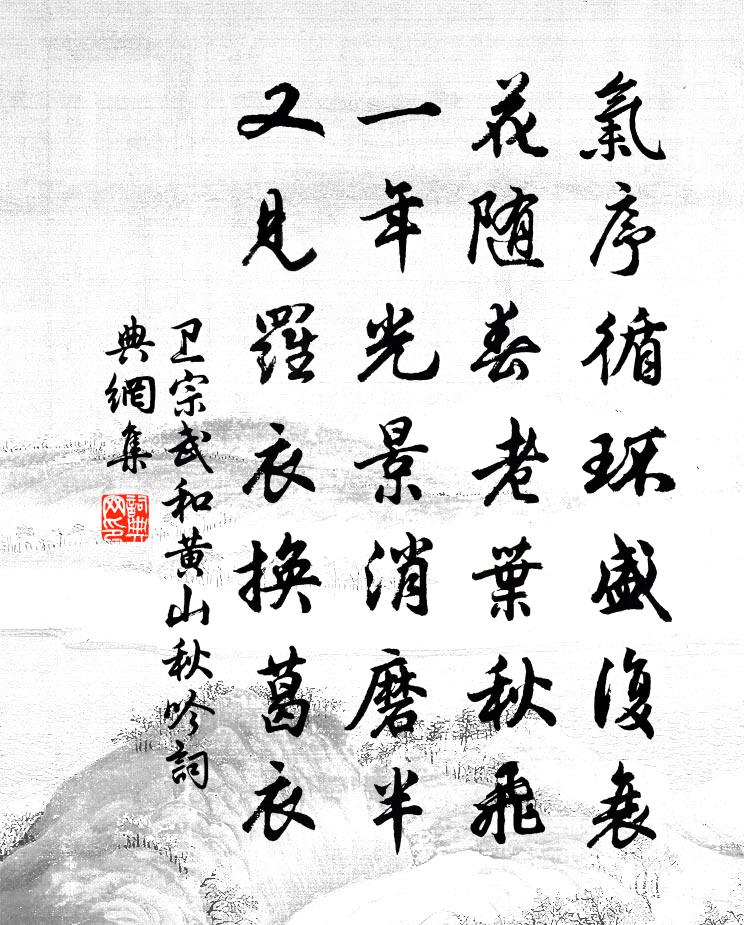 氣序循环盛復衰
花随春老葉秋飛
一年光景消磨半
又見羅衣換葛衣
卫宗武和黄山秋吟詞
典網集
詞典網印